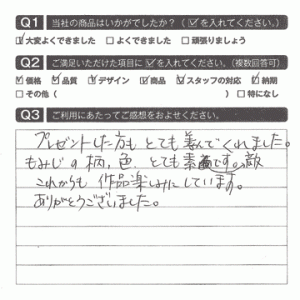 Q1 当社の商品はいかがでしたか？（☑を入れてください。）
☑大変よくできました □よくできました □頑張りましょう
Q2 ご満足いただけた項目に☑を入れてください。（複数回答可）
☑価格 ☑品質 ☑デザイン ☑商品 ☑スタッフの対応 ☑納期
□その他（ ）□特になし
Q3 ご利用にあたってご感想をおよせください。
プレゼントした方も とても喜んでくれました。
もみじの柄、色、とても素敵です。
これからも 作品楽しみにしています。
ありがとうございました。